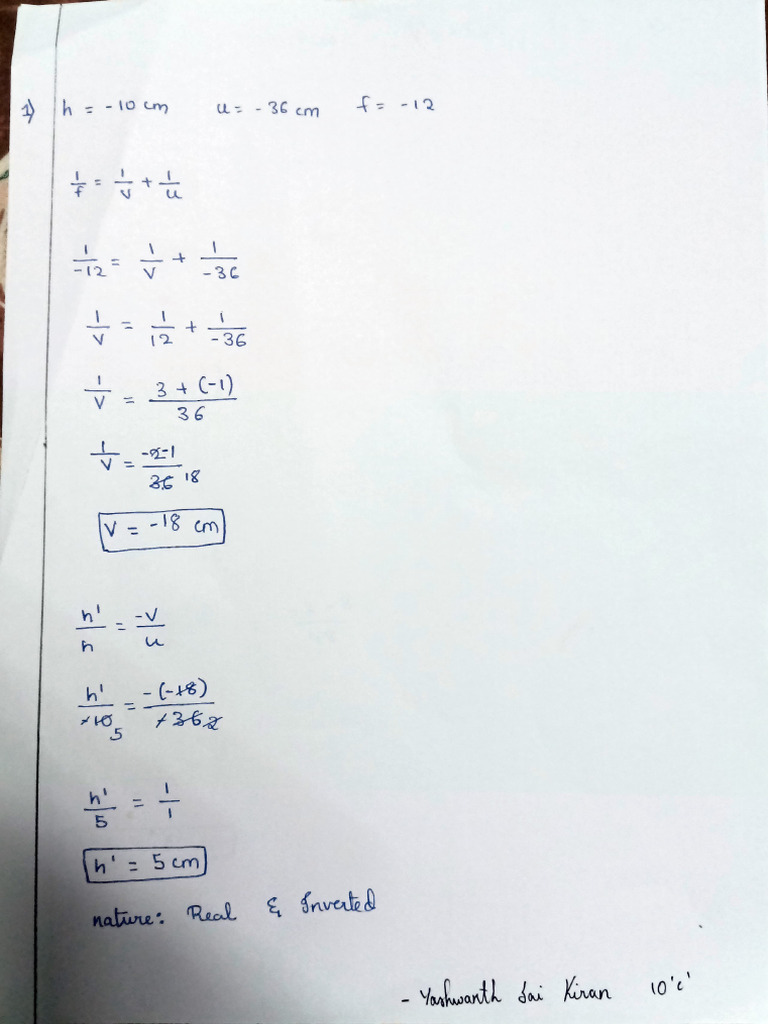 1) h = -10 cm u = -36 cm f = -12
1/f = 1/v + 1/u
1/-12 = 1/v + 1/-36
1/v = 1/12 + 1/-36
1/v = 3 + (-1)/36
1/v = -2-1/36 18
v = -18 cm
h'/h = -v/u
h'/-10 5 = -(-18)/-36 2
h'/5 = 1/1
h' = 5 cm
nature: Real & Inverted
- Yashwanth Sai Kiran 10'c'